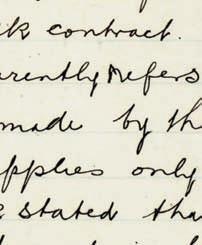 k contract.
rently refers
made by th
pplies only
stated tha